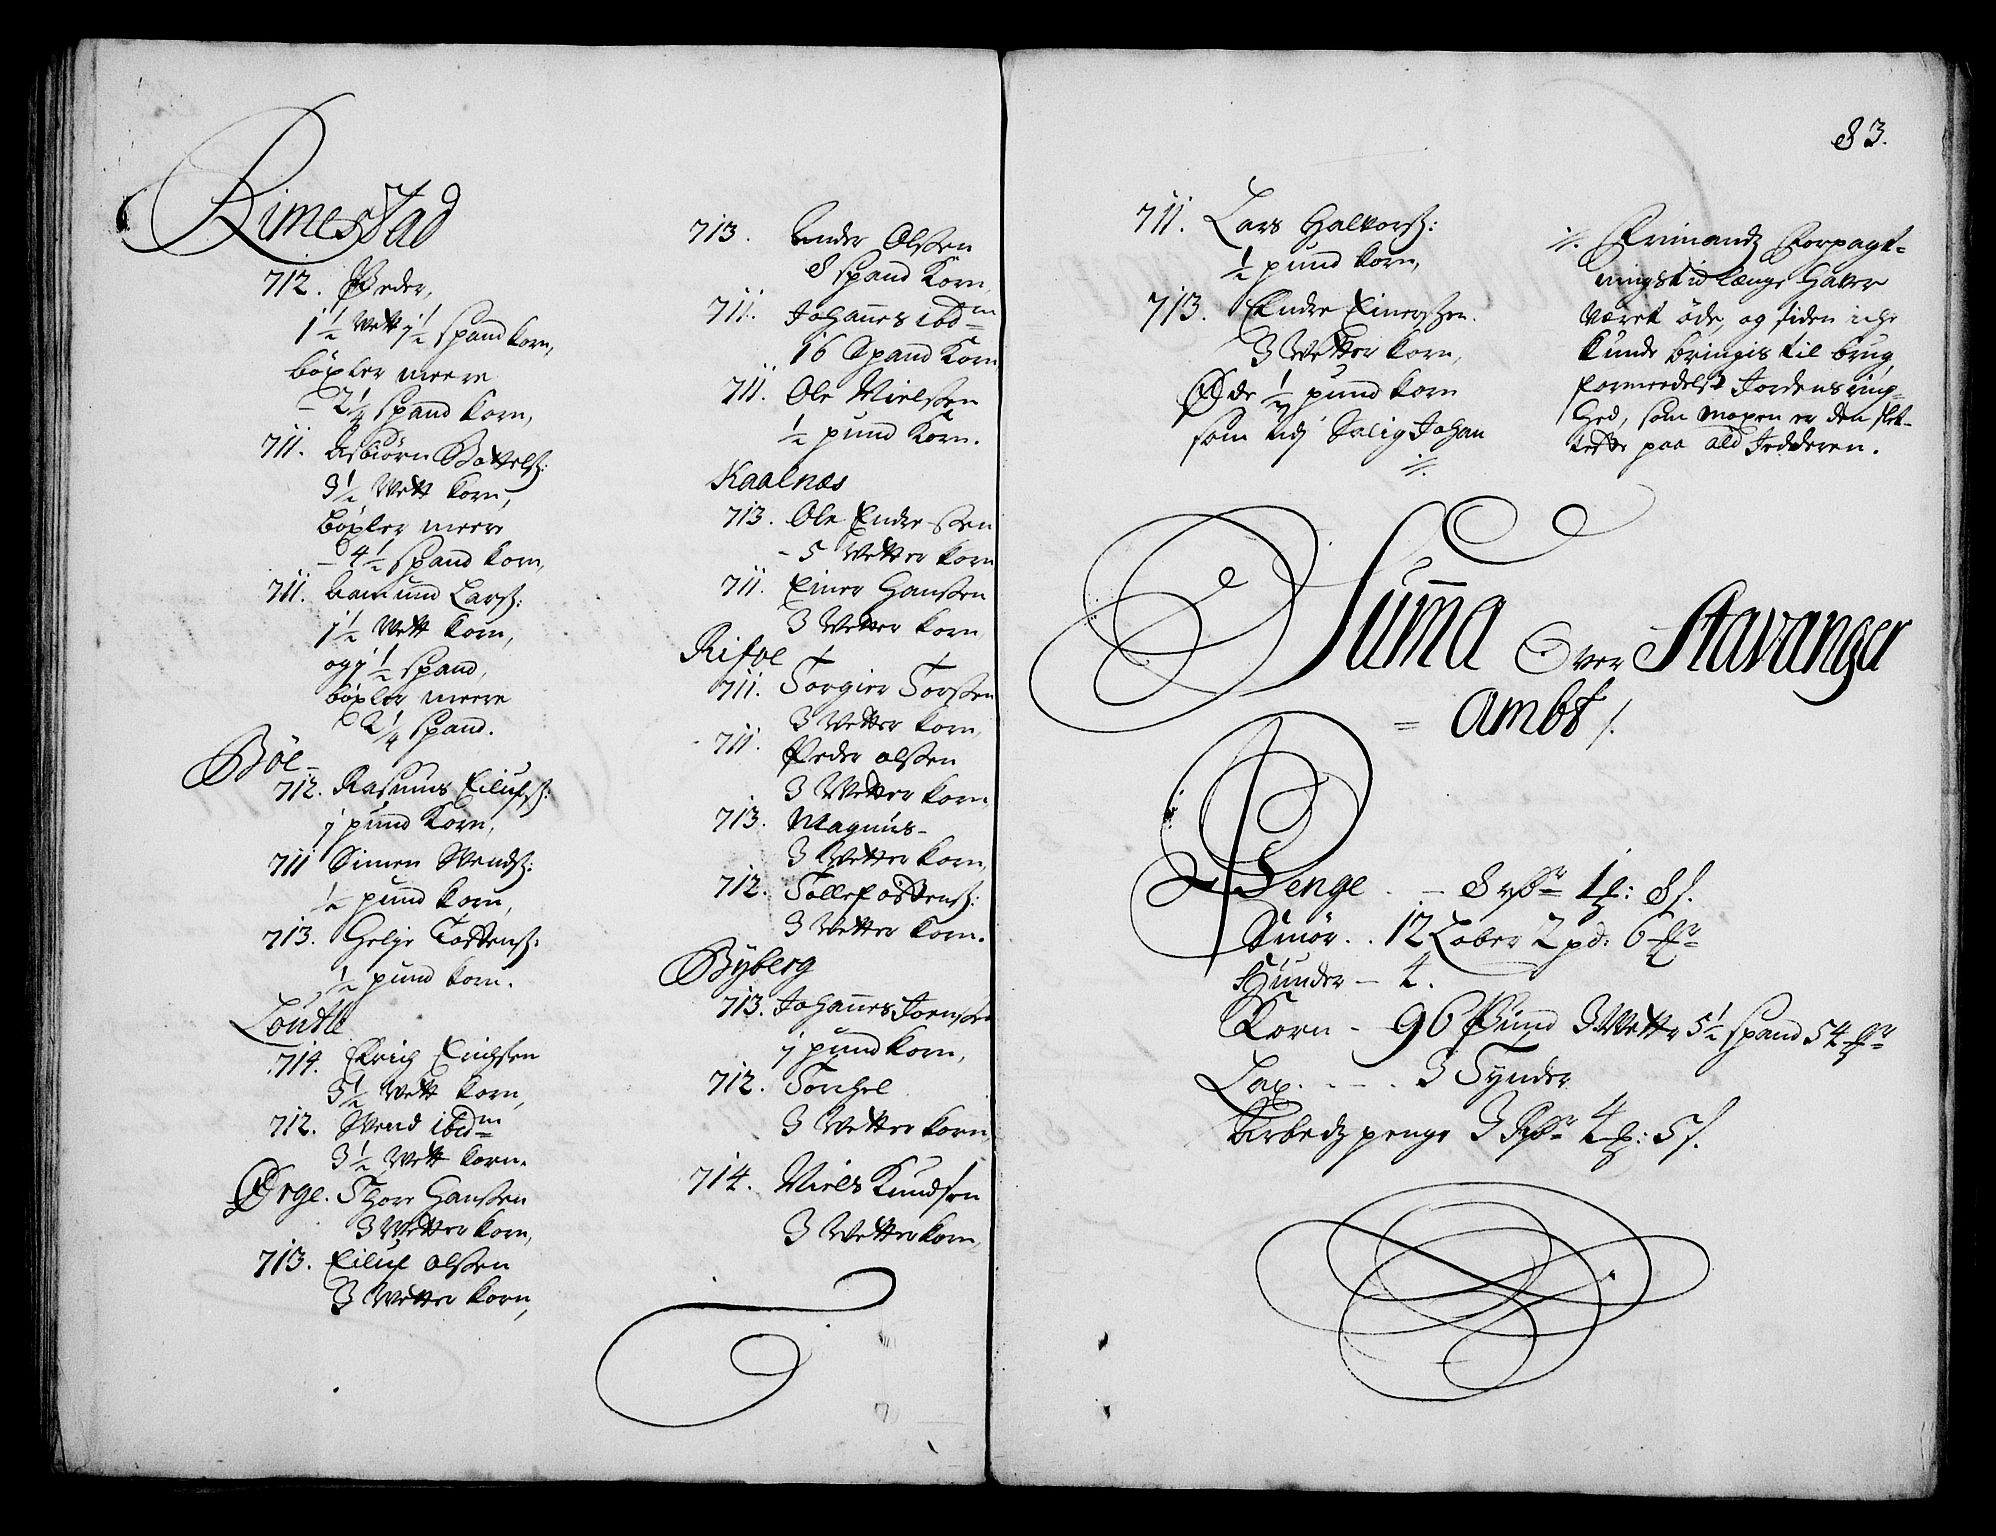 Rimestad
712. Peder,
1½ Wett 1½ Spand Korn,
böxler meere
- 2¼ Spand Korn,
711. Asbiörn Bottelß:
3½ Wett Korn,
böxler meere
- 4½ Spand Korn,
711. Aamund Larß:
1½ Wett Korn,
og 1½ Spand,
böxler meere
2¼ Spand.
Böe
712. Rasmus Eilufß:
1 pund Korn,
711 Simen Svendß:
½ pund Korn,
713. Helje Tostenß:
½ pund Korn.
714. Erich Erichsen
3½ Wett Korn,
712. Svend ibdm
3½ Wett Korn.
Ørge. Thore Hanßen
3 Wetter Korn,
713. Eiluf Olßen
3 Wetter Korn,
713. Ender Olßen
8 Spand Korn,
711. Johannes ibdm
16 Spand Korn
711. Ole Nielßen
½ pund Korn.
Kaalnæs
713. Ole Endreßen
- 5 Wetter Korn
711. Einer Hanßen
3 Wetter Korn
Risöe
711. Torgier Torßen
3 Wetter Korn,
711. Peder Olßen
3 Wetter Korn,
713. Magnus-
3 Wetter Korn,
712. Tollef Ostenß:
3 Wetter Korn.
Byberg
713. Johannes Joenßen
1 pund Korn,
712. Torchel
3 Wetter Korn
714. Niels Knudsen
3 Wetter Korn,
83.
711. Lars Halvorß:
½ pund Korn,
713. Endre Einerßen.
3 Wetter Korn,
Øde ½ pund Korn
som udj Salig Johan
./.
./. Frimandz Forpagt-
ningstid længe haver
været öde, og siden iche
kunde bringis til brug,
formedelst Jordens ring-
hed, som maxen er den slet-
teste paa ald Jedderen.
Summa Over Stavanger
= Ambt /.
Penge - 8 rdr 1 ℔: 8 s.
Smör . . 12 Løber 2 pd: 6 mr
Hunder - 4.
Korn - 96 Pund 3 Wetter 5½ Spand 54 mr
Lax. . - . 3 Tynder
Arbedz penge 3 Rdr 4 ℔: 5 s.